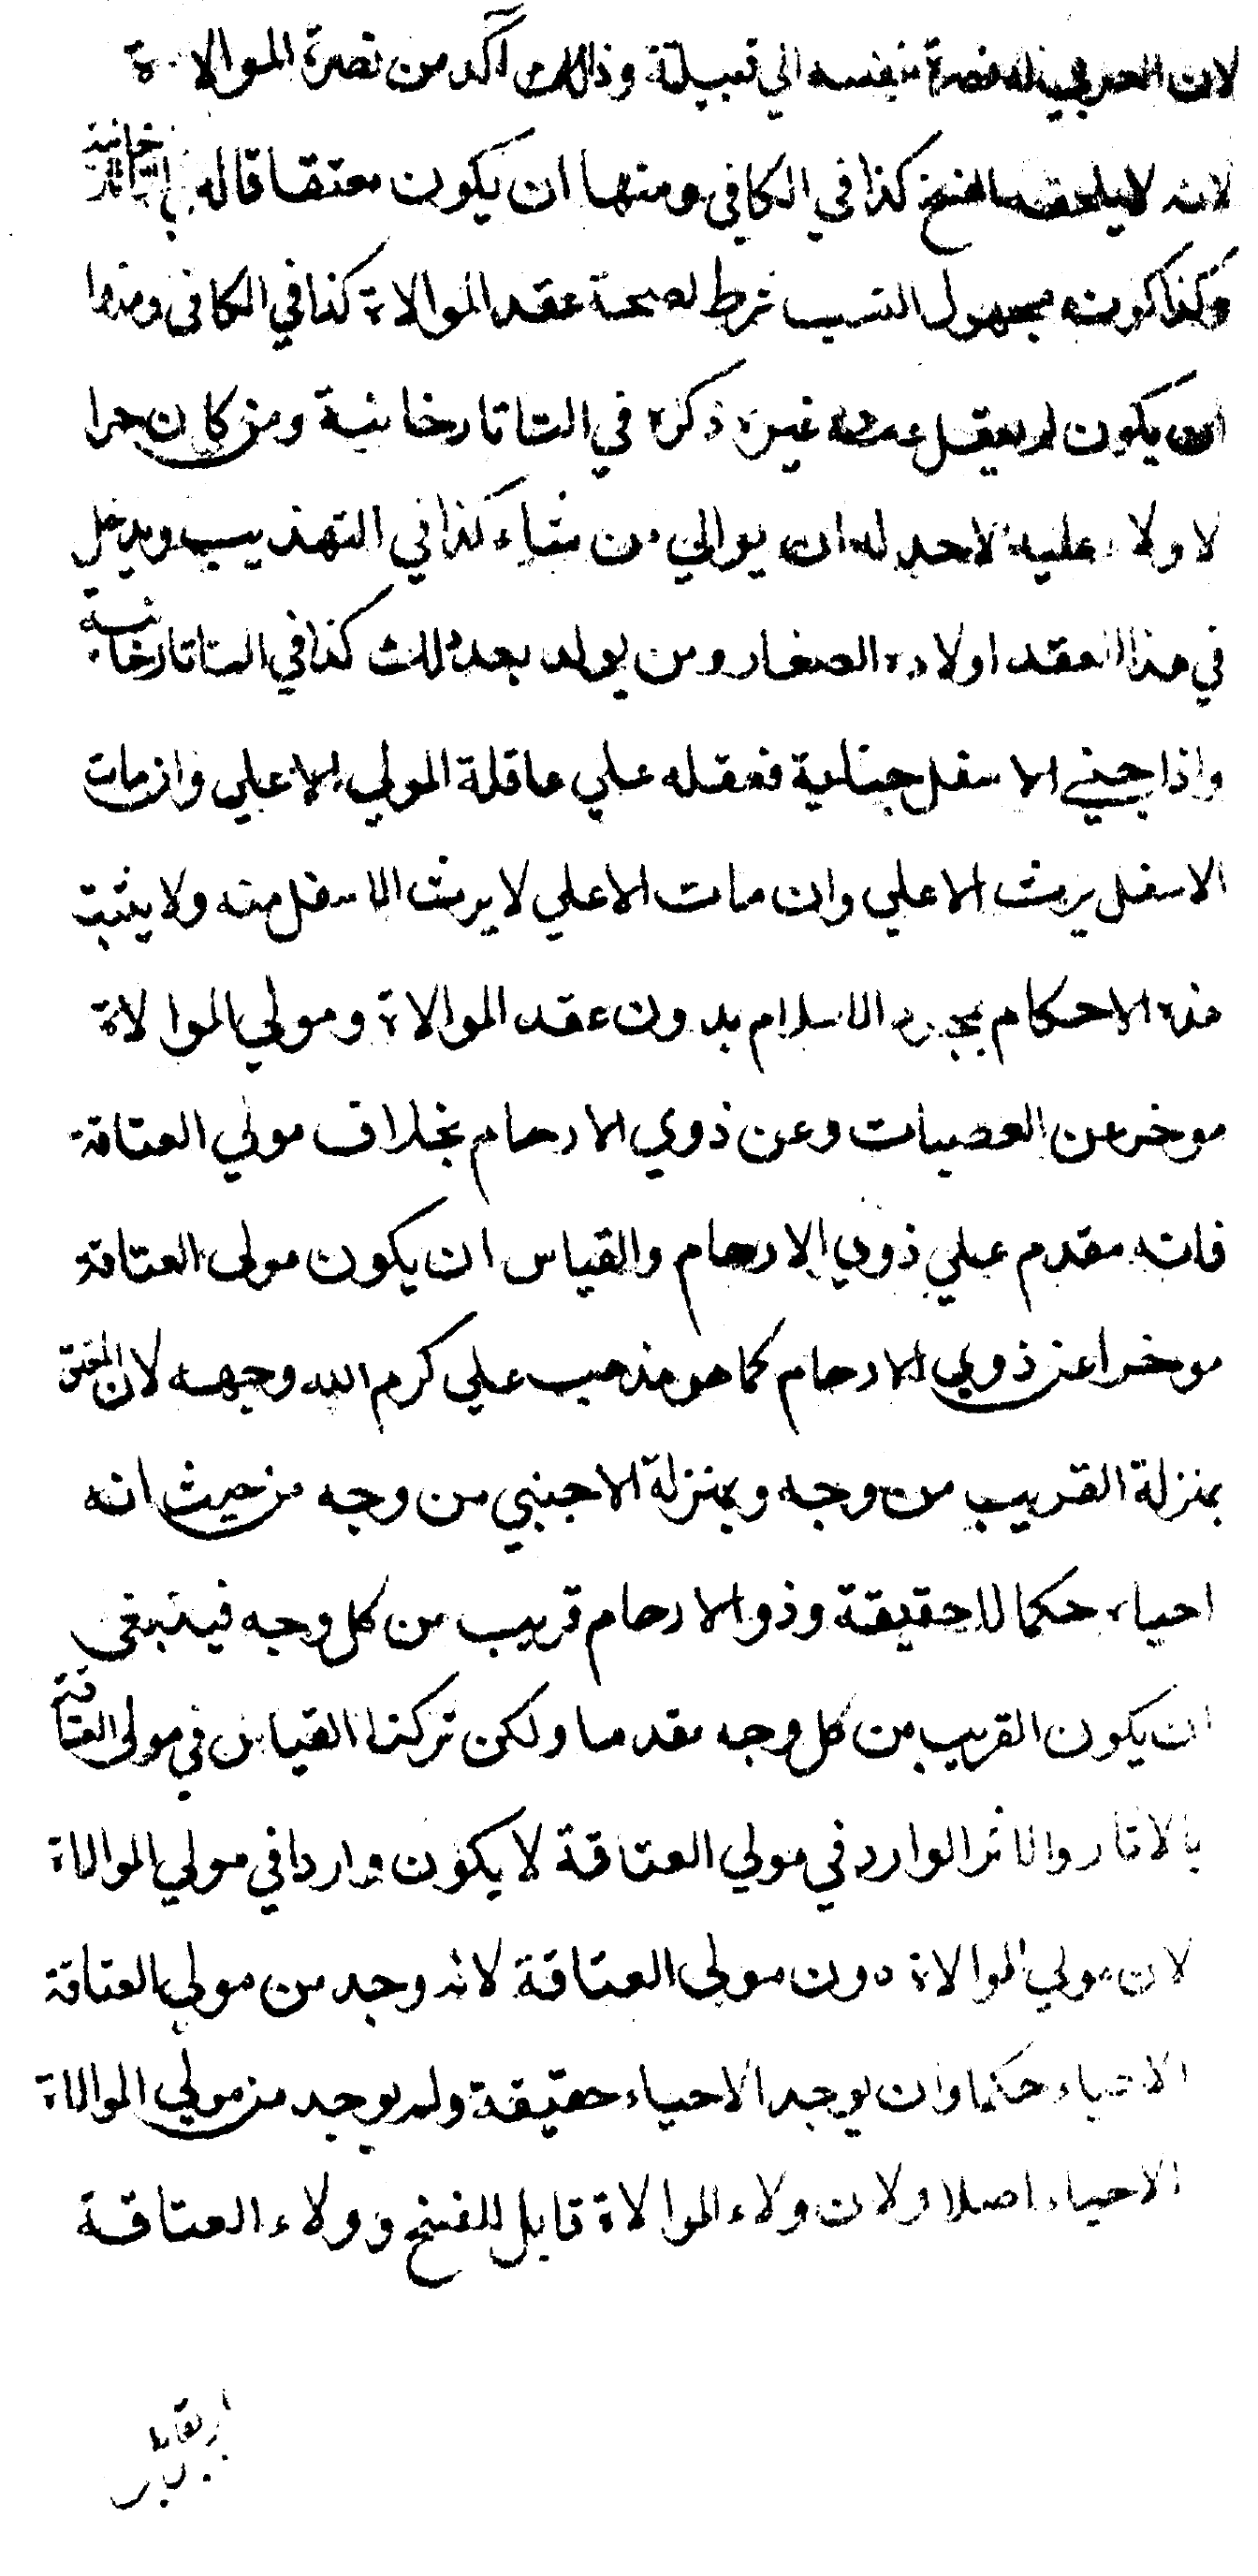 لان العربي له نصرة بنفسه الي قبيلة وذالك آكد من نصرة الموالاة
لانه لا يلحقه الفسخ كذا في الكافي ومنها ان يكون معتقا قاله التاتارخانية
وكذا كونه مجهول النسب شرط لصحة عقد الموالاة كذا في الكافي ومنها
ان يكون لم يعقل عنه غيره ذكره في التاتارخانية ومن كان حرا
لا ولاء عليه لاحد له ان يوالي من شاء كذا في التهذيب ويدخل
في هذا العقد اولاده الصغار ومن يولد بعد ذلك كذا في التاتارخانية
واذا جني الاسفل جناية فعقله علي عاقلة المولي الاعلي وان مات
الاسفل يرث الاعلي وان مات الاعلي لا يرث الاسفل منه ولا يثبت
هذه الاحكام بمجرد الاسلام بدون عقد الموالاة ومولي الموالاة
موخر عن العصبات وعن ذوي الارحام بخلاف مولي العتاقة
فانه مقدم علي ذوي الارحام والقياس ان يكون مولي العتاقة
موخرا عن ذوي الارحام كما هو مذهب علي كرم الله وجهه لان المعتق
بمنزلة القريب من وجه وبمنزلة الاجنبي من وجه من حيث انه
احياء حكما لا حقيقة وذو الارحام قريب من كل وجه فينبغي
ان يكون القريب من كل وجه مقدما ولكن تركنا القياس في مولي العتاقة
بالاثار والاثر الوارد في مولي العتاقة لا يكون واردا في مولي الموالاة
لان مولي الموالاة دون مولي العتاقة لانه وجد من مولي العتاقة
الاحياء حكما وان يوجد الاحياء حقيقة ولم يوجد من مولي الموالاة
الاحياء اصلا ولان ولاء الموالاة قابل للفسخ وولاء العتاقة